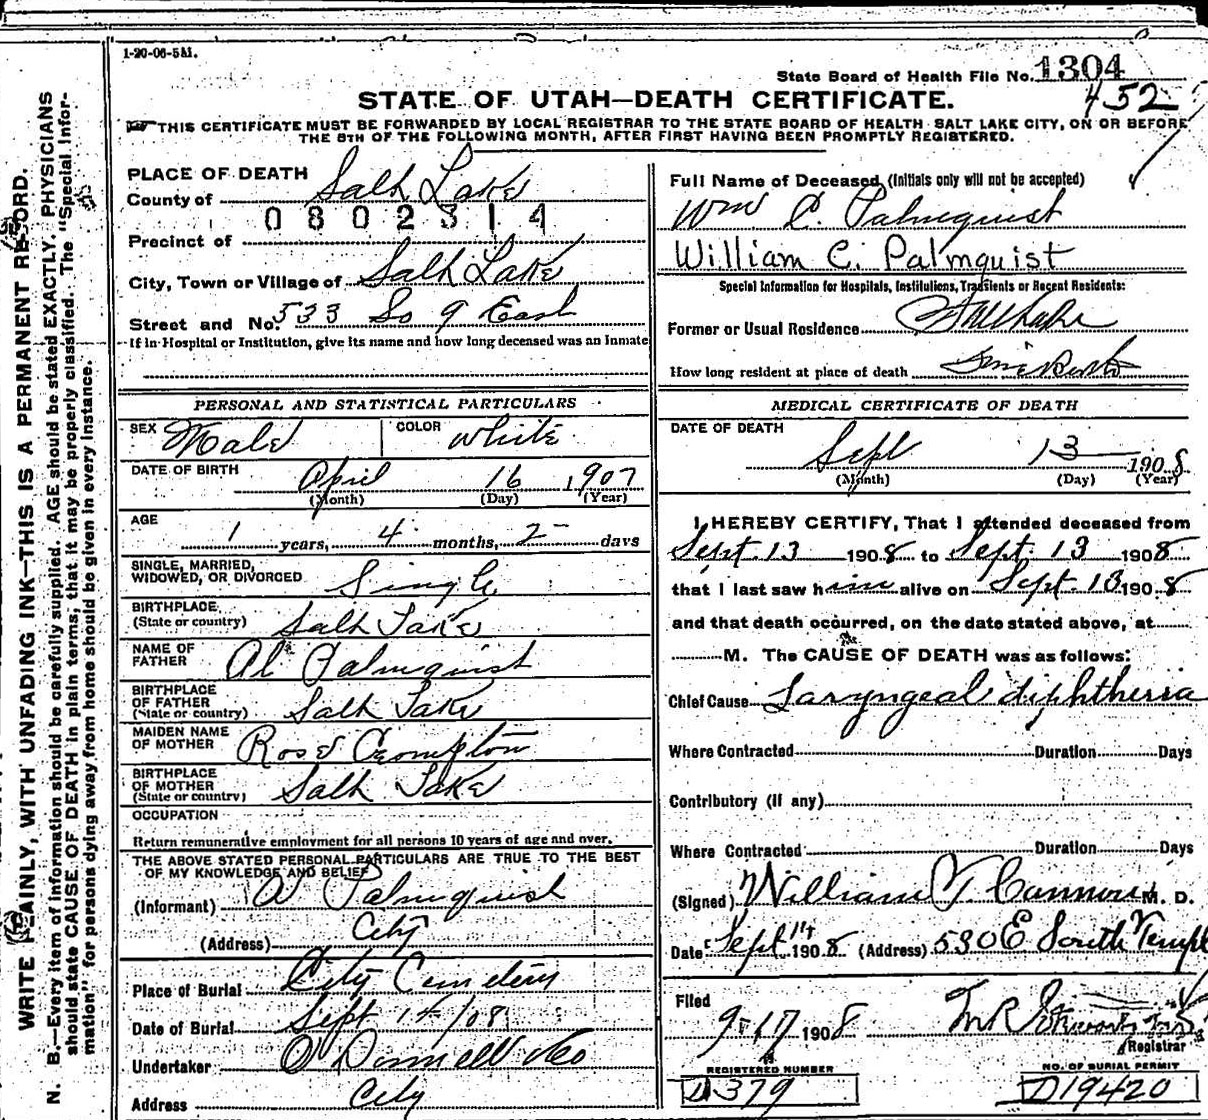 1-20-06-5M.
State Board of Health File No. 1304
452
STATE OF UTAH—DEATH CERTIFICATE.
THIS CERTIFICATE MUST BE FORWARDED BY LOCAL REGISTRAR TO THE STATE BOARD OF HEALTH SALT LAKE CITY, ON OR BEFORE
THE 5TH OF THE FOLLOWING MONTH, AFTER FIRST HAVING BEEN PROMPTLY REGISTERED.
WRITE PLAINLY, WITH UNFADING INK—THIS IS A PERMANENT RECORD.
N. B.—Every item of information should be carefully supplied. AGE should be stated EXACTLY. PHYSICIANS
should state CAUSE OF DEATH in plain terms, that it may be properly classified. The "Special Infor-
mation" for persons dying away from home should be given in every instance.
PLACE OF DEATH
County of Salt Lake
0802314
Precinct of
City, Town or Village of Salt Lake
Street and No. 533 So 9 East
If in Hospital or Institution, give its name and how long deceased was an Inmate
PERSONAL AND STATISTICAL PARTICULARS
SEX Male COLOR White
DATE OF BIRTH April 16 1907
(Month) (Day) (Year)
AGE
1 years, 4 months, 2 days
SINGLE, MARRIED,
WIDOWED, OR DIVORCED Single
BIRTHPLACE
(State or country) Salt Lake
NAME OF
FATHER Al Palmquist
BIRTHPLACE
OF FATHER
(State or country) Salt Lake
MAIDEN NAME
OF MOTHER Rose Crompton
BIRTHPLACE
OF MOTHER
(State or country) Salt Lake
OCCUPATION
Return remunerative employment for all persons 10 years of age and over.
THE ABOVE STATED PERSONAL PARTICULARS ARE TRUE TO THE BEST
OF MY KNOWLEDGE AND BELIEF
(Informant) Al Palmquist
(Address) City
Place of Burial City Cemetery
Date of Burial Sept 14/08
Undertaker O'Donnell & Co
Address City
Full Name of Deceased (Initials only will not be accepted)
Wm C. Palmquist
William C. Palmquist
Special Information for Hospitals, Institutions, Transients or Recent Residents:
Former or Usual Residence Salt Lake
How long resident at place of death Since Birth
MEDICAL CERTIFICATE OF DEATH
DATE OF DEATH
Sept 13 1908
(Month) (Day) (Year)
I HEREBY CERTIFY, That I attended deceased from
Sept. 13 1908 to Sept. 13 1908
that I last saw him alive on Sept. 13 1908
and that death occurred, on the date stated above, at
M. The CAUSE OF DEATH was as follows:
Chief Cause Laryngeal diphtheria
Where Contracted Duration Days
Contributory (if any)
Where Contracted Duration Days
(Signed) William T. Cannon M. D.
Date Sept 14 1908 (Address) 530 E South Templ
Filed
9-17 1908
Registrar
REGISTERED NUMBER
D379
NO. OF BURIAL PERMIT
D19420